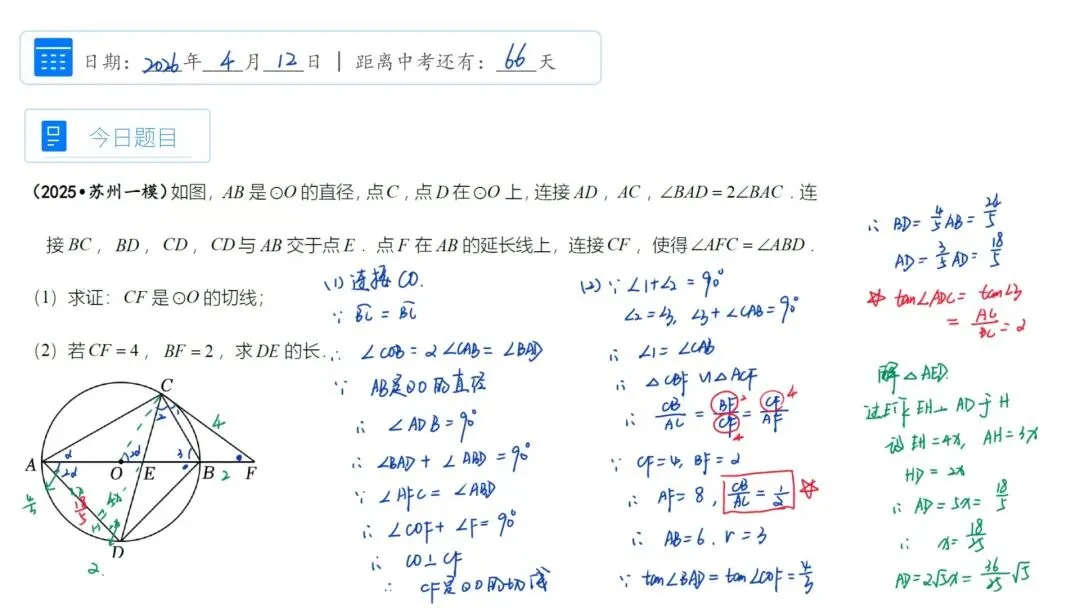 日期: 2026 年 4 月 12 日 | 距离中考还有: 66 天
今日题目
(2025•苏州一模)如图, AB 是 ⊙O 的直径, 点 C, 点 D 在 ⊙O 上, 连接 AD, AC, ∠BAD = 2∠BAC. 连
接 BC, BD, CD, CD 与 AB 交于点 E. 点 F 在 AB 的延长线上, 连接 CF, 使得 ∠AFC = ∠ABD.
(1) 求证: CF 是 ⊙O 的切线;
(2) 若 CF = 4, BF = 2, 求 DE 的长.
(1) 连接 CO.
∵ BC = BC
∴ ∠COB = 2∠CAB = ∠BAD
∵ AB是⊙O的直径
∴ ∠ADB = 90°
∴ ∠BAD + ∠ABD = 90°
∵ ∠AFC = ∠ABD
∴ ∠COF + ∠F = 90°
∴ CO⊥CF
∴ CF是⊙O的切线
(2) ∵ ∠1+∠2 = 90°
∠2=∠3, ∠3+∠CAB=90°
∴ ∠1=∠CAB
∴ △CBF ∽ △ACF
∴ CB/AC = BF/CF = CF/AF
2
4
4
∵ CF=4, BF=2
∴ AF=8, CB/AC = 1/2 ☆
∴ AB=6, r=3
∵ tan∠BAD = tan∠COF = 4/3
∴ BD = 4/5 AB = 24/5
AD = 3/5 AD = 18/5
☆ tan∠ADC = tan∠3
= AC/BC = 2
解△AED.
过E作EH⊥AD于H
设EH=4x, AH=3x
HD = 2x
∴ AD = 5x = 18/5
∴ x = 18/25
AD = 2√5x = 36/25 √5
C
A
O
E
B
F
D
H
4
2
1
2
3
α
2α
2α
18/5
4/3
2